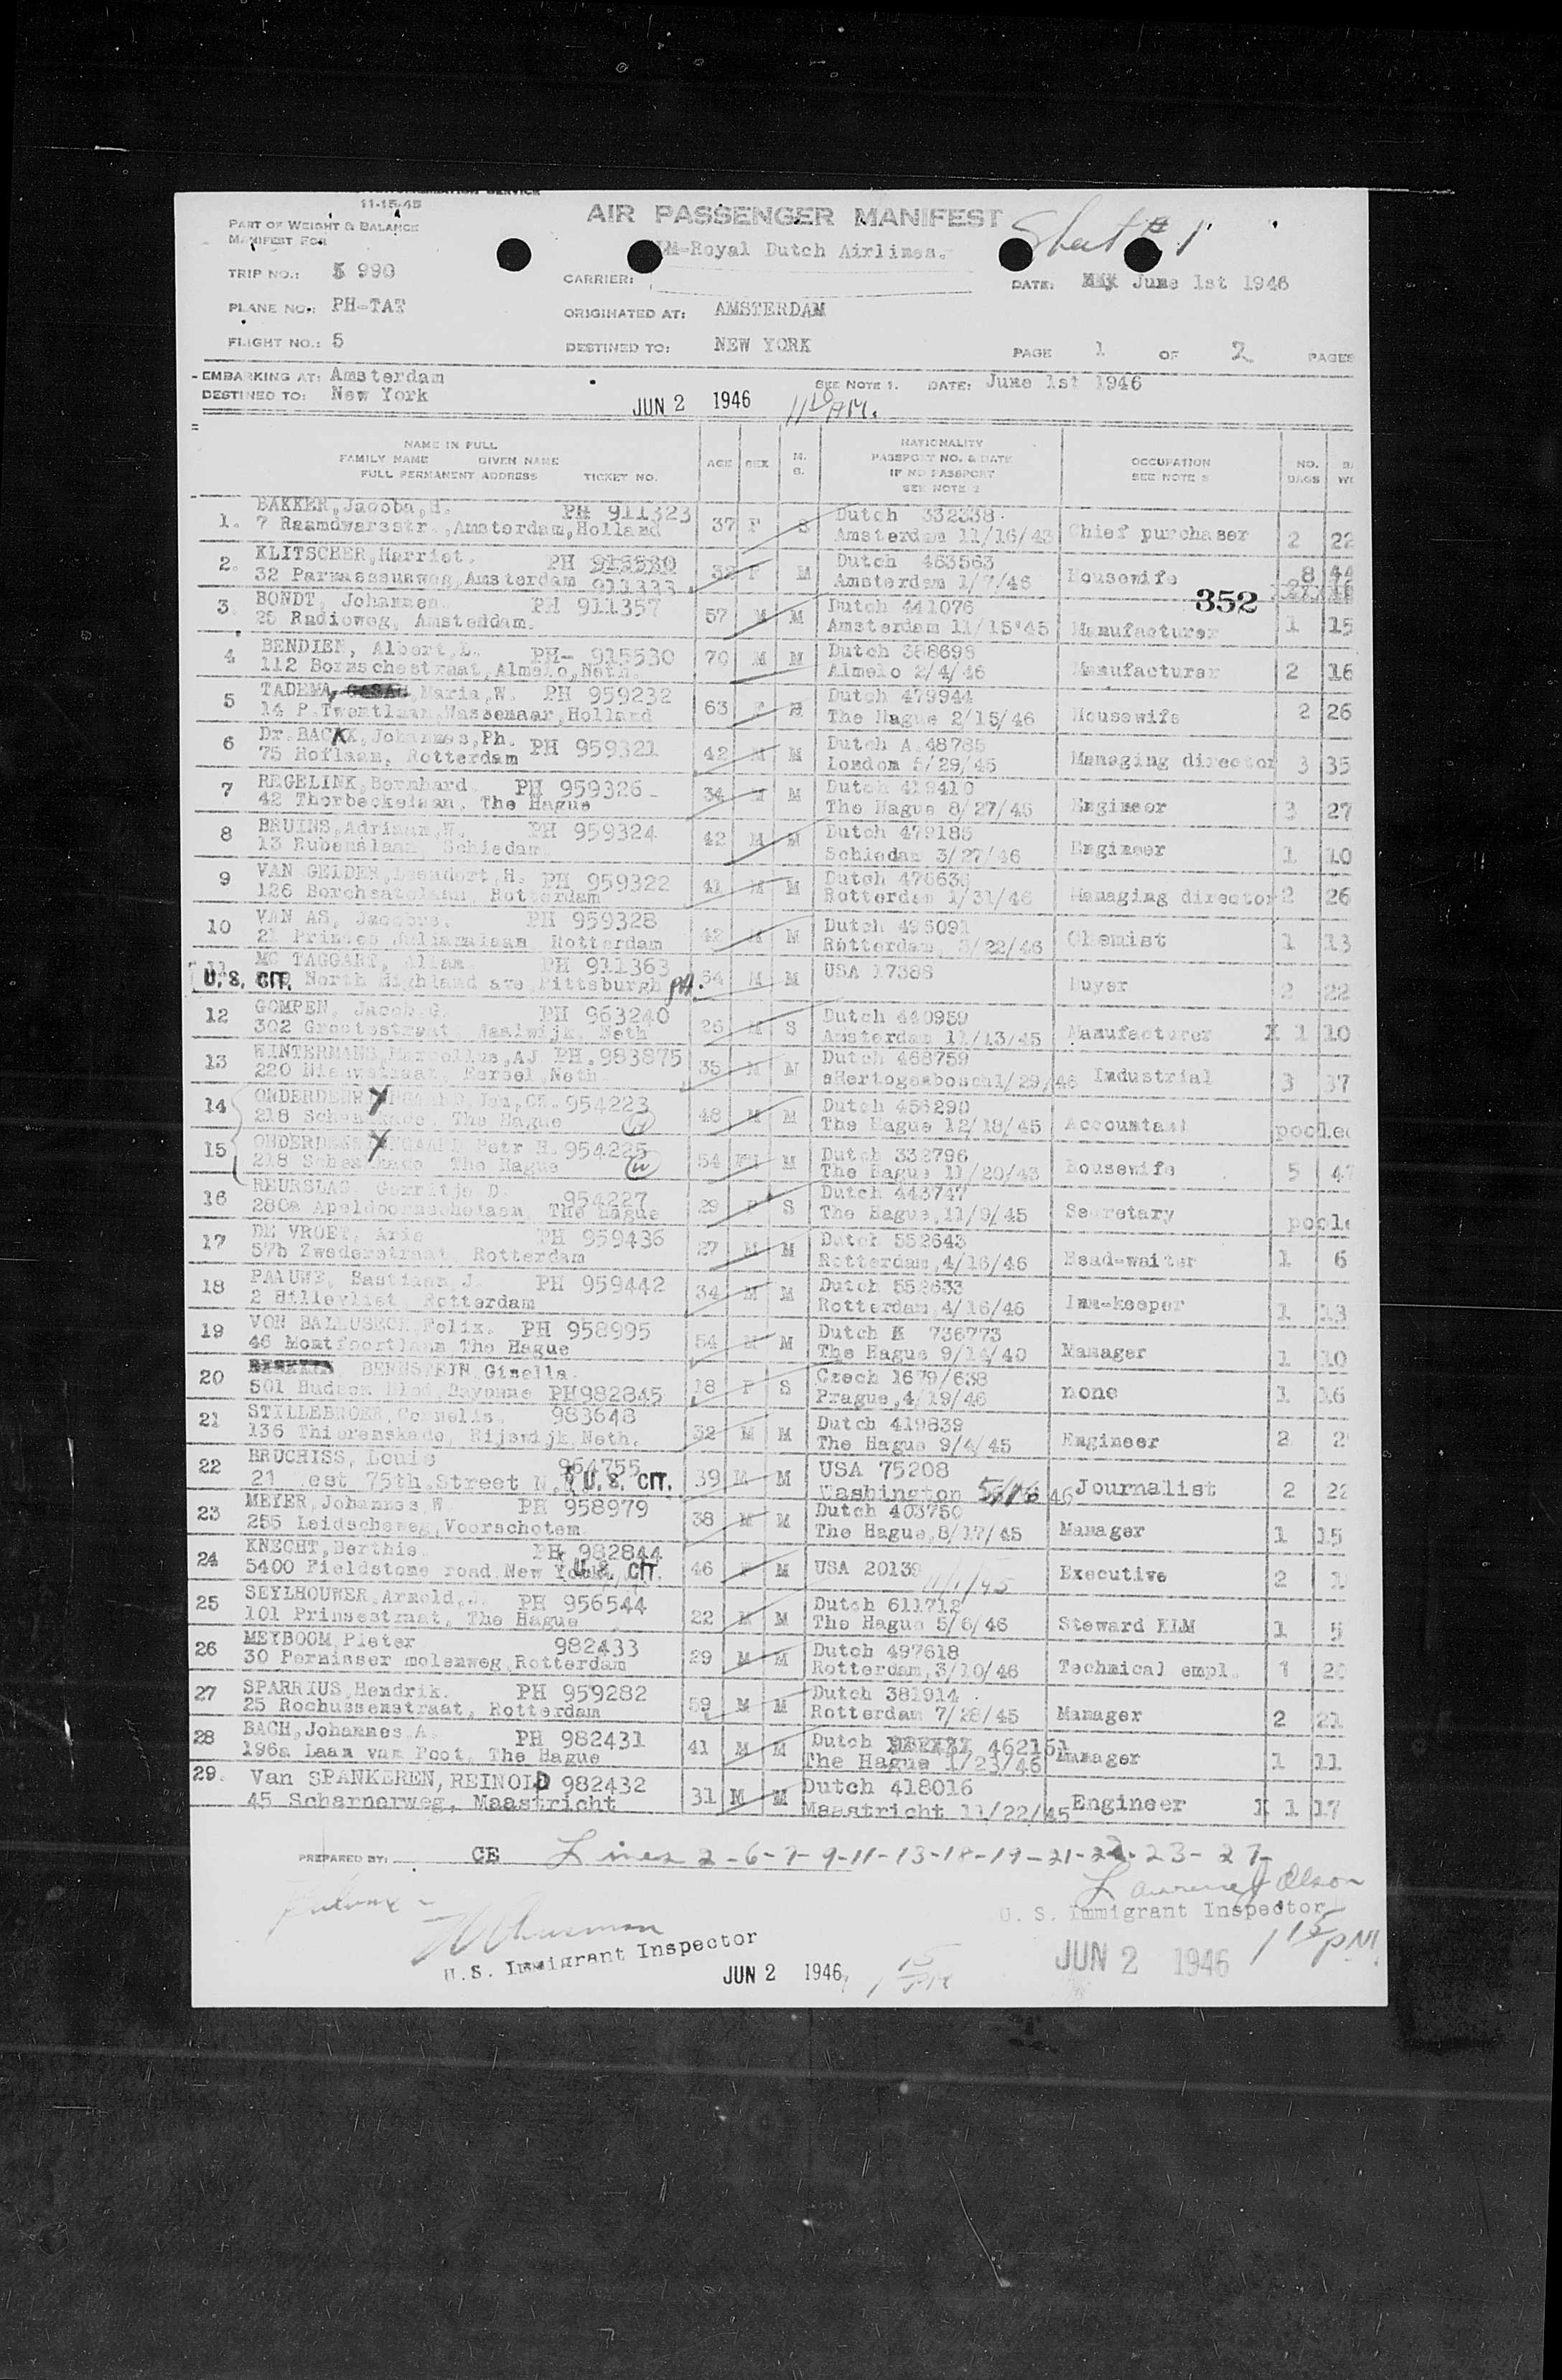 11-15-45
PART OF WEIGHT & BALANCE
MANIFEST FOR
AIR PASSENGER MANIFEST
Sheet # 1
LM-Royal Dutch Airlines.
TRIP NO.: 5 990
CARRIER:
DATE: June 1st 1946
PLANE NO.: PH-TAT
ORIGINATED AT: AMSTERDAM
FLIGHT NO.: 5
DESTINED TO: NEW YORK
PAGE 1 OF 2 PAGES
EMBARKING AT: Amsterdam
SEE NOTE 1. DATE: June 1st 1946
DESTINED TO: New York
JUN 2 1946
NAME IN FULL
FAMILY NAME GIVEN NAME
FULL PERMANENT ADDRESS TICKET NO.
AGE SEX M. S.
NATIONALITY
PASSPORT NO. & DATE
IF NO PASSPORT
SEE NOTE 2
OCCUPATION
NO. BAGS
1. BAKKER, Jacoba, H. PH 911323 37 F S Dutch 332338 Chief purchaser 2 22
7 Raamdwarsstr., Amsterdam, Holland Amsterdam 11/16/43
2. KLITSCHER, Harriet. PH 913530 F M Dutch 463563 Housewife 8 44
32 Parnassusweg, Amsterdam 911333 Amsterdam 1/7/46
352
3. BONDT, Johannes. PH 911357 57 M M Dutch 441076 Manufacturer 1 15
25 Radioweg, Amsterdam. Amsterdam 11/15'45
4 BENDIEN, Albert, L. PH- 915530 70 M M Dutch 388698 Manufacturer 2 16
112 Bornschestraat, Almelo, Neth. Almelo 2/4/46
5 TADEMA, Maria, W. PH 959232 63 F Dutch 479944 Housewife 2 26
14 P. Twentlaan, Wassenaar, Holland The Hague 2/15/46
6 Dr. BACKX, Johannes, Ph. PH 959321 42 M M Dutch A.48785 Managing director 3 35
75 Hoflaan, Rotterdam London 5/29/45
7 REGELINK, Bernhard. PH 959326 34 M M Dutch 419410 Engineer 3 27
42 Thorbeckelaan, The Hague The Hague 8/27/45
8 BRUINS, Adriaan, W. PH 959324 42 M M Dutch 479185 Engineer 1 10
13 Rubenslaan, Schiedam. Schiedam 3/27/46
9 VAN GELDER, Leendert, H. PH 959322 41 M M Dutch 476636 Managing director 2 26
126 Rotterdam Rotterdam 1/31/46
10 VAN AS, Jacobus. PH 959328 42 M M Dutch 495091 Chemist 1 13
21 Prinses Julianalaan Rotterdam Rotterdam, 3/22/46
11 MC TAGGART, Allan. PH 911363 54 M M USA 17386 Buyer 2 22
U.S. CIT. North Highland ave Pittsburgh PA.
12 GOMPEN, Jacob G. PH 963240 26 M S Dutch 440959 Manufacturer X 1 10
302 Grootestraat, Waalwijk, Neth Amsterdam 11/13/45
13 WINTERMANS, Marcellus, AJ PH.983875 35 M M Dutch 468759 Industrial 3 37
220 Nieuwstraat, Eersel, Neth. sHertogenbosch 1/29/46
14 Jan, CH. 954223 48 M M Dutch 456290 Accountant pooled
218 Schenkkade, The Hague The Hague 12/18/45
15 Petr H. 954225 54 M Dutch 332796 Housewife 5 47
218 Schenkkade The Hague The Hague 11/20/43
16 REURSLAG Gerritje D. 954227 29 F S Dutch 443747 Secretary
280a Apeldoornschelaan, The Hague The Hague, 11/9/45
17 DE VROET, Arie PH 959436 27 M M Dutch 552643 Head-waiter 1 6
57b Zwederstraat, Rotterdam Rotterdam, 4/16/46
18 PAAUWE, Bastiaan, J. PH 959442 34 M M Dutch 552633 Inn-keeper 1 13
2 Hillevliet, Rotterdam Rotterdam, 4/16/46
19 VON BALLUSECK, Felix. PH 958995 54 M M Dutch 736773 Manager 1 10
46 Montfoortlaan The Hague The Hague 9/14/40
20 BERNSTEIN, Gisella. 18 F S Czech 1679/638 none 1 16
501 Hudson Blvd, Bayonne PH982845 Prague, 4/19/46
21 STILLEBROER, Cornelis. 983648 32 M M Dutch 419839 Engineer 2
136 Thierenskade, Rijswijk, Neth. The Hague 9/4/45
22 BRUCHISS, Louis 964755 39 M M USA 75208 Journalist 2 22
21 est 75th. Street N.Y U.S. CIT. Washington 46
23 MEYER, Johannes W. PH 958979 38 M M Dutch 403750 Manager 1 15
255 Leidscheweg, Voorschoten The Hague, 8/17/45
24 KNECHT, Berthie. PH 982844 46 F M USA 20139 11/1/45 Executive 2
5400 Fieldstone road New York U.S. CIT.
25 SEYLHOUWER, Arnold, J. PH 956544 22 M M Dutch 611712 Steward KLM 1 5
101 Prinsestraat, The Hague The Hague 5/6/46
26 MEYBOOM, Pieter 982433 29 M M Dutch 497618 Technical empl. 1 20
30 Pernisser molenweg, Rotterdam Rotterdam, 3/10/46
27 SPARRIUS, Hendrik. PH 959282 59 M M Dutch 381914 Manager 2 21
25 Rochussenstraat, Rotterdam Rotterdam 7/28/45
28 BACH, Johannes A. PH 982431 41 M M Dutch 462161 Manager 1 11
196a Laan van Poot, The Hague The Hague 1/23/46
29. Van SPANKEREN, REINOLD 982432 31 M M Dutch 418016 Engineer X 1 17
45 Scharnerweg, Maastricht Maastricht 11/22/45
PREPARED BY: CE Lines 2-6-7-9-11-13-18-19-21-22-23-27-
Lawrence J Olson
U. S. Immigrant Inspector
U.S. Immigrant Inspector
JUN 2 1946
JUN 2 1946
1 15 PM